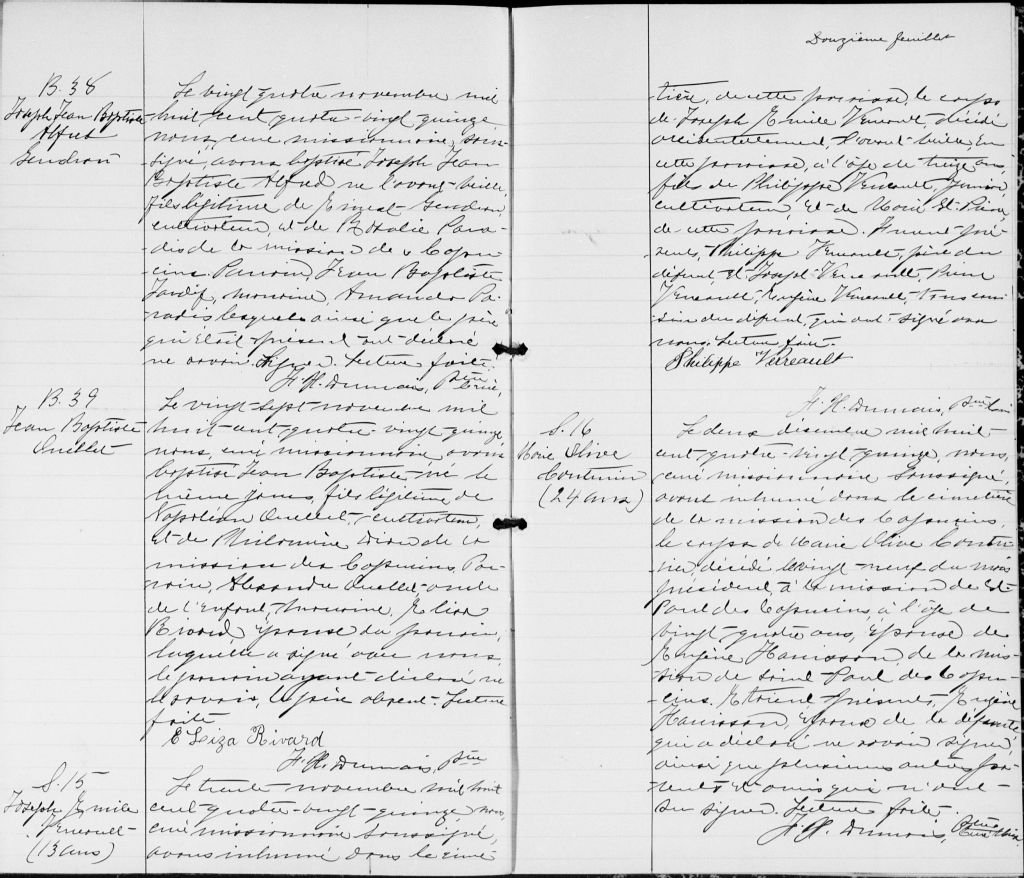 Douzième feuillet
B. 38
Joseph Jean Baptiste
Alfred
Gendron
Le vingt quatre novembre mil
huit cent quatre-vingt quinze
nous, curé missionnaire, sous-
signé, avons baptisé Joseph Jean
Baptiste Alfred né l'avant-veille,
fils légitime de Ernest Gendron,
cultivateur, et de Rosalie Para-
dis de la mission des Capu-
cins. Parrain, Jean Baptiste
Tardif, marraine, Amanda Pa-
radis lesquels ainsi que le père
qui était présent ont déclaré
ne savoir signer. Lecture faite.
F. X. Dumais, Ptre Curé,
B. 39
Jean Baptiste
Ouellet
Le vingt-sept novembre mil
huit-cent quatre-vingt quinze
nous, curé missionnaire avons
baptisé Jean Baptiste né le
même jour, fils légitime de
Napoléon Ouellet, cultivateur,
et de Philomène Dion de la
mission des Capucins. Par-
rain, Alexandre Ouellet oncle
de l'enfant, marraine, Eliza
Rivard épouse du parrain,
laquelle a signé avec nous,
le parrain ayant déclaré ne
le savoir, le père absent. Lecture
faite
E Leiza Rivard
F. X. Dumais, Ptre
S. 15
Joseph Emile
Verreault
(13 ans)
Le trente novembre mil huit
cent quatre-vingt-quinze, nous,
curé missionnaire soussigné,
avons inhumé dans le cime-
tière, de cette paroisse, le corps
de Joseph Emile Verreault décédé
accidentellement, l'avant-veille, en
cette paroisse, à l'âge de treize ans,
fils de Philippe Verreault, Junior,
cultivateur, et de Marie St-Pierre,
de cette paroisse. Furent pré-
sents, Philippe Verreault, père du
défunt, et Joseph Verreault,
Verreault, Eugène Verreault, tous cou-
sins du défunt, qui ont signé avec
nous. Lecture faite.
Philippe Verreault
F. X. Dumais, Ptre Curé
S. 16
Marie Olive
Couturier
(24 ans)
Le deux décembre mil huit-
cent quatre-vingt quinze, nous,
curé missionnaire soussigné,
avons inhumé dans le cimetière
de la mission des Capucins,
le corps de Marie Olive Coutu-
rier, décédé le vingt neuf du mois
précédent, à la mission de St-
Paul des Capucins, à l'âge de
vingt-quatre ans, épouse de
Eugène Harrisson, de la mis-
sion de Saint Paul des Capu-
cins. Etaient présents, Eugène
Harrisson, époux de la défunte,
qui a déclaré ne savoir signer,
ainsi que plusieurs autres pa-
rents et amis qui n'ont
su signer. Lecture faite.
F. X. Dumais, Ptre
Curé Miss.